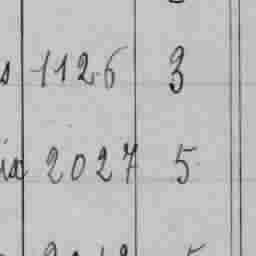 s 1126 3
ia 2027 5